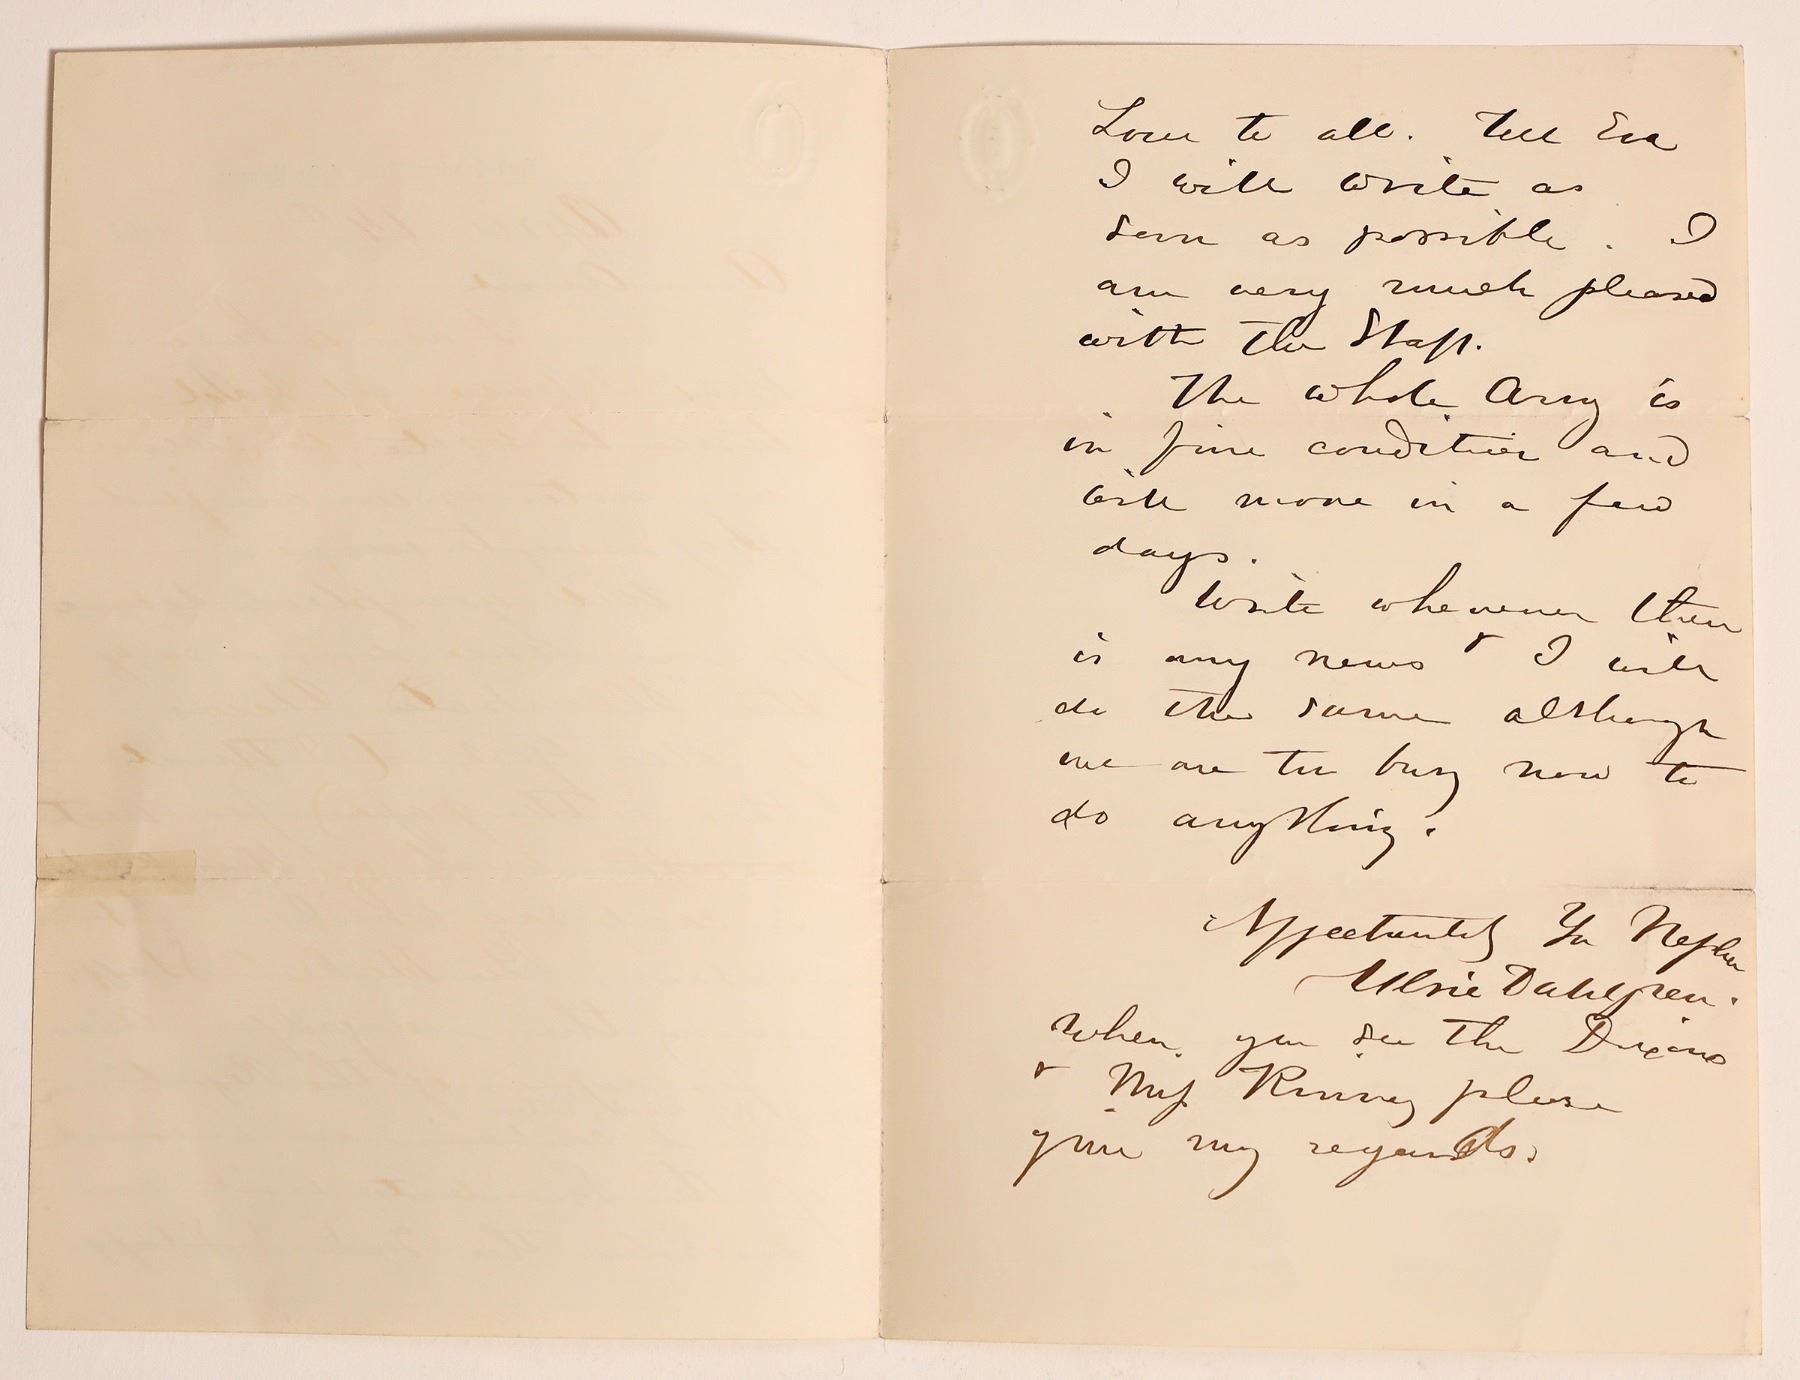 Love to all. Tell Eva
I will write as
soon as possible. I
am very much pleased
with the Staff.
The whole Army is
in fine condition and
will move in a few
days.
Write whenever there
is any news & I will
do the same although
we are too busy now to
do anything.
Affectionately Yr Nephew
Ulric Dahlgren.
When you see the Dixons
& Miss Kinney please
give my regards.